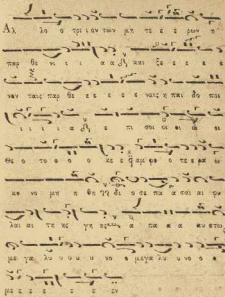 Αλ λο ο τρι ον των μη τε ε ε ρων η
παρ θε νι ι ι α α και ξε ε ε ε
νον ταις παρ θε ε ε ε ε ναις η παι δο ποι
ι ι ι ι α ε πι σοι οι οι οι
Θε ο το ο ο κε αμ φο ο τε ρα ω
κο νο μη η θη δι ο σε πα σαι αι φυ
λαι αι της γης η α πα α αυ στω
με γα λυ υ υ υ νο ο με γα λυ υ νο ο ο
με ε ε ε ε εν